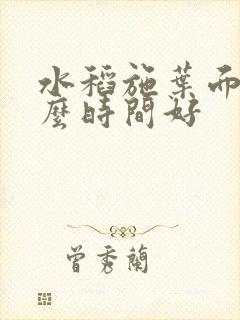 水稻施葉而
麼時間好
曾秀蘭